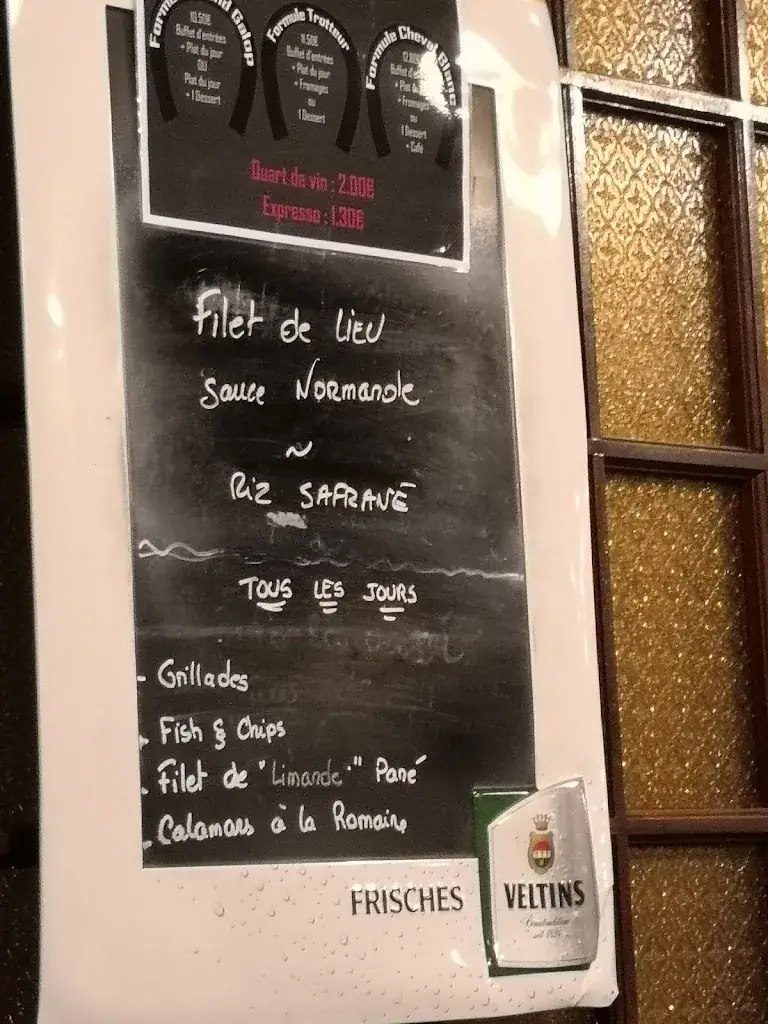 Formule Grand Galop
10.50€
Buffet d'entrées
+ Plat du jour
OU
Plat du jour
+ 1 Dessert
Formule Trotteur
11.50€
Buffet d'entrées
+ Plat du jour
+ Fromages
ou
1 Dessert
Formule Cheval Blanc
Buffet d'entrées
+ Plat du jour
+ Fromages
ou
1 Dessert
+ Café
Quart de vin : 2.00€
Expresso : 1.30€
Filet de LIEU
Sauce NORMANDE
~
Riz SAFRANÉ
TOUS LES JOURS
- Grillades
- Fish & Chips
- Filet de "Limande" Pané
- Calamars à la Romaine
FRISCHES
VELTINS
seit 1824